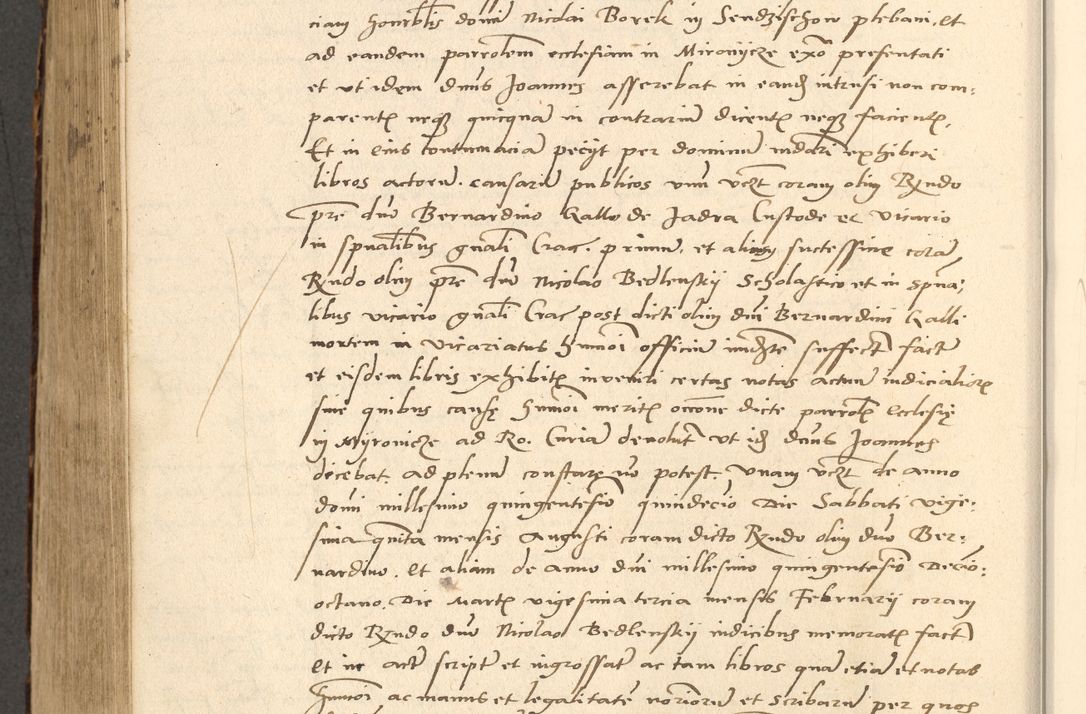 ciam honrblis domi Nicolai Borek in Sendzischow plebani, et
ad eandem parrolem ecclesiam in Mironijcze exo presentati
et ut idem dnus Joannes asserebat in eand intrusi non com:
parent neq quicquam in contrarium dicent neq facient,
Et in eius contumaciam pecijt per dominum mdari exhiberi
libros actorum causarum publicos unum vczt coram olim Rndo
pre dno Bernardino Gallo de Jadra Custode et vicario
in spualibus gnali Crac. primum, et alium successive coram
Rndo olim pre dno Nicolao Bedlenskij Scholastico et in spua:
libus vicario gnali Crac post dicti olim dni Bernardini Galli
mortem in vicariatus hmoi officium imdte suffect fact
et eisdem libris exhibit inveniri certas notas actum iudicialior
sive quibus causę hmoi merit occone dicte parrol ecclesię
in Myronicze ad Ro. Curiam devolut ut id dnus Joannes
dicebat, ad plenum constare no potest, Unam vczt de anno
domi millesimo quingentesio quindecio Die Sabbati vige:
sima quinta mensis Augusti coram dicto Rndo olim dno Ber:
nardino. Et aliam de anno dni millesimo quingentesio Decio:
octavo, Die Martis vigesima tercia mensis Februarij coram
dicto Rndo dno Nicolao Bedlenskij iudicibus memorat fact
Et in act script et ingrossat ac tam libros quam etiam et notas
hmoi ac manus et legalitatem noriorum et scribarum per quos